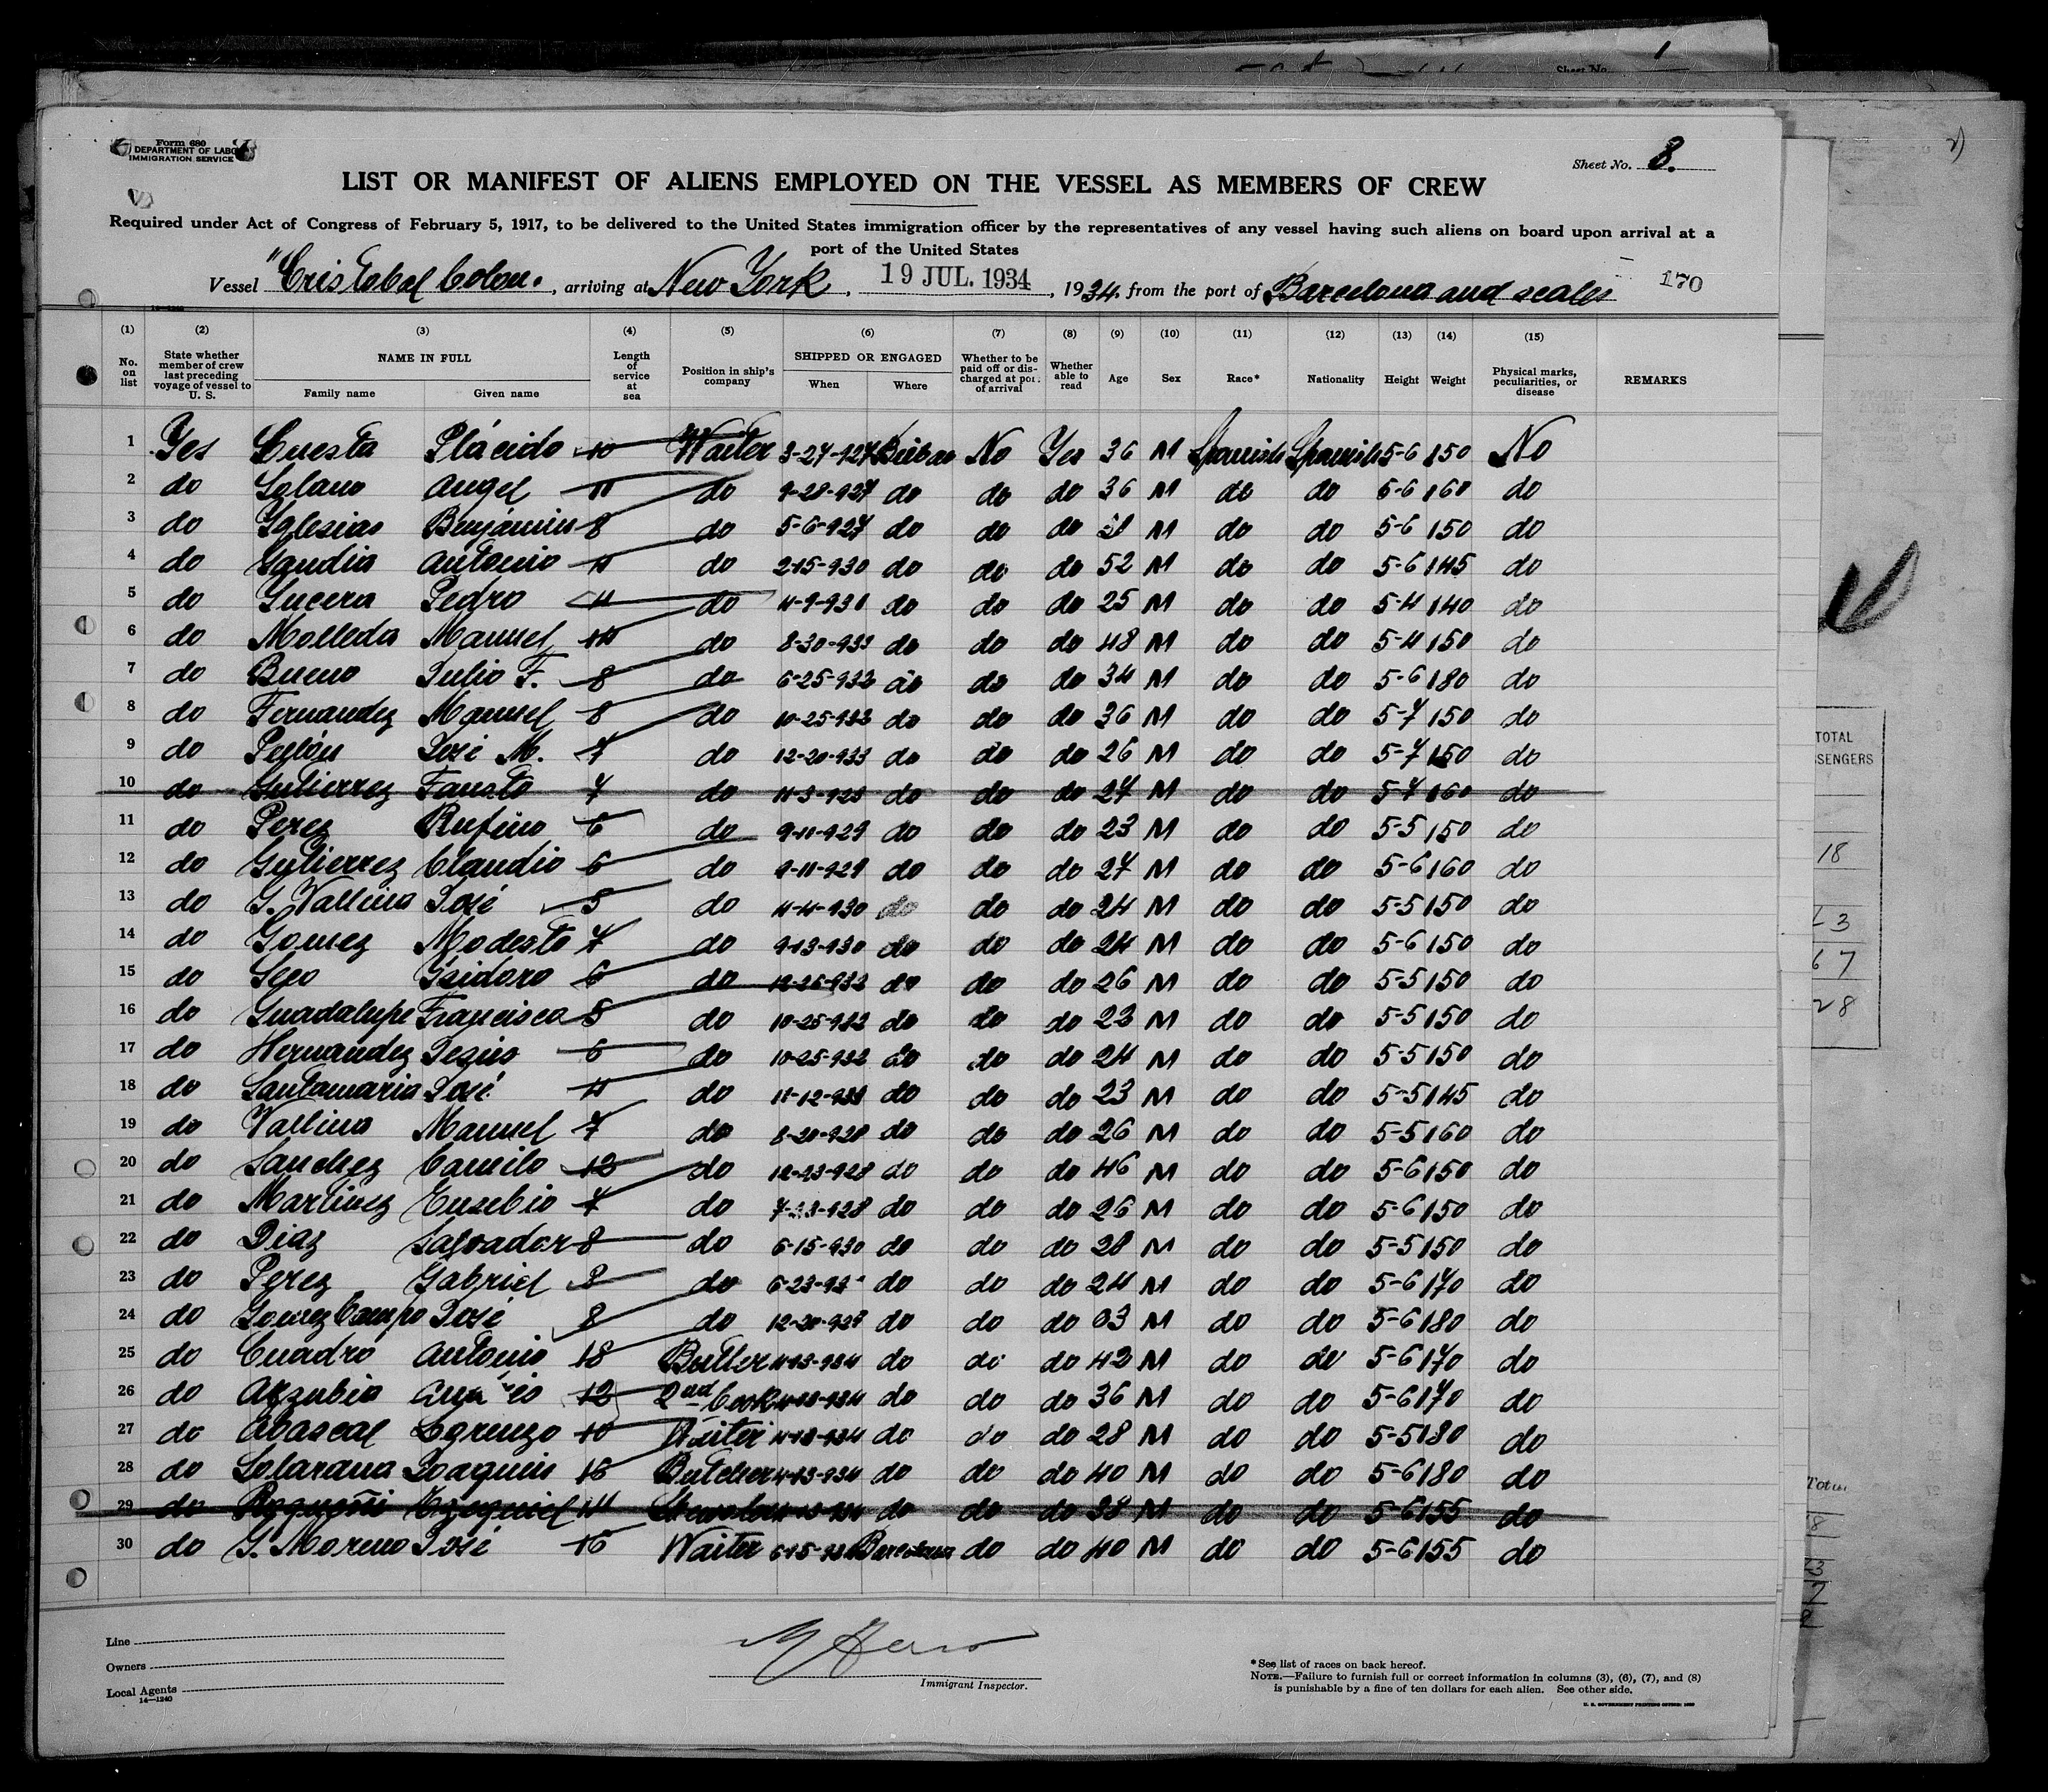 Sheet No. 1
Form 680
DEPARTMENT OF LABOR
IMMIGRATION SERVICE
Sheet No. 8.
LIST OR MANIFEST OF ALIENS EMPLOYED ON THE VESSEL AS MEMBERS OF CREW
Required under Act of Congress of February 5, 1917, to be delivered to the United States immigration officer by the representatives of any vessel having such aliens on board upon arrival at a
port of the United States
Vessel "Cristobal Colon. , arriving at New York , 19 JUL. 1934 , 1934. from the port of Barcelona and scales 170
(1) (2) (3) (4) (5) (6) (7) (8) (9) (10) (11) (12) (13) (14) (15)
No. on list State whether member of crew last preceding voyage of vessel to U. S. NAME IN FULL Family name Given name Length of service at sea Position in ship's company SHIPPED OR ENGAGED When Where Whether to be paid off or discharged at port of arrival Whether able to read Age Sex Race* Nationality Height Weight Physical marks, peculiarities, or disease REMARKS
1 Yes Cuesta Plácido 10 Waiter 3-27-927 Bilbao No Yes 36 M Spanish Spanish 5-6 150 No
2 do Solano Angel 11 do 9-28-927 do do do 36 M do do 5-6 160 do
3 do Yglesias Benjamin 8 do 5-6-927 do do do M do do 5-6 150 do
4 do Gandia Antonio 11 do 2-15-930 do do do 52 M do do 5-6 145 do
5 do Lucera Pedro 4 do 4-9-931 do do do 25 M do do 5-4 140 do
6 do Molleda Manuel 14 do 8-30-933 do do do 48 M do do 5-4 150 do
7 do Bueno Julio F. 8 do 6-25-932 do do do 34 M do do 5-6 180 do
8 do Fernandez Manuel 8 do 10-25-933 do do do 36 M do do 5-7 150 do
9 do José M. 7 do 12-20-933 do do do 26 M do do 5-7 150 do
10 do Gutierrez Fausto 7 do 11-3-923 do do do 27 M do do 5-7 160 do
11 do Perez Rufino 6 do 9-11-929 do do do 23 M do do 5-5 150 do
12 do Gutierrez Claudio 6 do 9-11-929 do do do 27 M do do 5-6 160 do
13 do G. Vallina José 5 do 4-4-930 do do do 24 M do do 5-5 150 do
14 do Gomez Modesto 7 do 9-13-930 do do do 24 M do do 5-6 150 do
15 do Isidoro 6 do 12-26-932 do do do 26 M do do 5-5 150 do
16 do Guadalupe Francisco 5 do 10-25-932 do do do 23 M do do 5-5 150 do
17 do Hernandez Jesus 6 do 10-25-932 do do do 24 M do do 5-5 150 do
18 do Santamaria José 4 do 11-12-933 do do do 23 M do do 5-5 145 do
19 do Vallina Manuel 7 do 8-20-928 do do do 26 M do do 5-5 160 do
20 do Sanchez Camilo 12 do 12-23-928 do do do 46 M do do 5-6 150 do
21 do Martinez Eusebio 7 do 7-23-928 do do do 26 M do do 5-6 150 do
22 do Diaz Salvador 8 do 6-15-930 do do do 28 M do do 5-5 150 do
23 do Perez Gabriel 8 do do do do 24 M do do 5-6 170 do
24 do Gomez Campo José 8 do do do do 33 M do do 5-6 180 do
25 do Cuadro Antonio 18 Butler 4-13-934 do do do 42 M do do 5-6 170 do
26 do Arzubia 12 2nd Cook 4-13-934 do do do 36 M do do 5-6 170 do
27 do Abascal Lorenzo 10 Waiter 4-13-934 do do do 28 M do do 5-5 180 do
28 do Solarana Joaquin 16 Butcher 4-13-934 do do do 40 M do do 5-6 180 do
29 do Ezequiel 14 4-13-934 do do do 38 M do do 5-6 155 do
30 do G. Moreno José 16 Waiter Barcelona do do 40 M do do 5-6 155 do
Line
Owners
Local Agents
14—1240
Immigrant Inspector.
*See list of races on back hereof.
NOTE.—Failure to furnish full or correct information in columns (3), (6), (7), and (8)
is punishable by a fine of ten dollars for each alien. See other side.
TOTAL
SSENGERS
18
3
67
28
Total